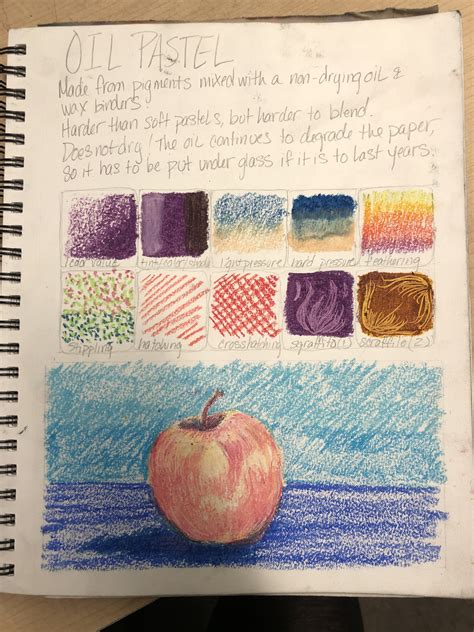 OIL PASTEL
Made from pigments mixed with a non-drying oil &
wax binders.
Harder than soft pastels, but harder to blend.
Does not dry! The oil continues to degrade the paper,
so it has to be put under glass if it is to last years.
value
tint/color/shade
light pressure
hard pressure
feathering
stippling
hatching
crosshatching
sgraffito (1)
sgraffito (2)